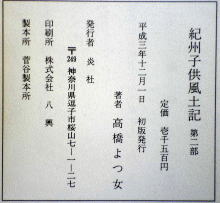 紀州子供風土記 第二部
定価 壱千五百円
平成三年十二月一日 初版発行
著者 高橋よつ女
発行者 炎社
〒249 神奈川県逗子市桜山七—一—二七
印刷所 株式会社 八興
製本所 菅谷製本所